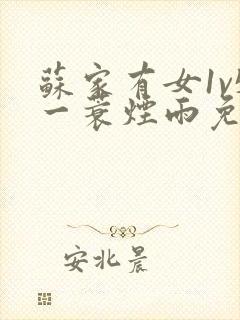 蘇家有女1v1
一蓑煙雨免
安北晨